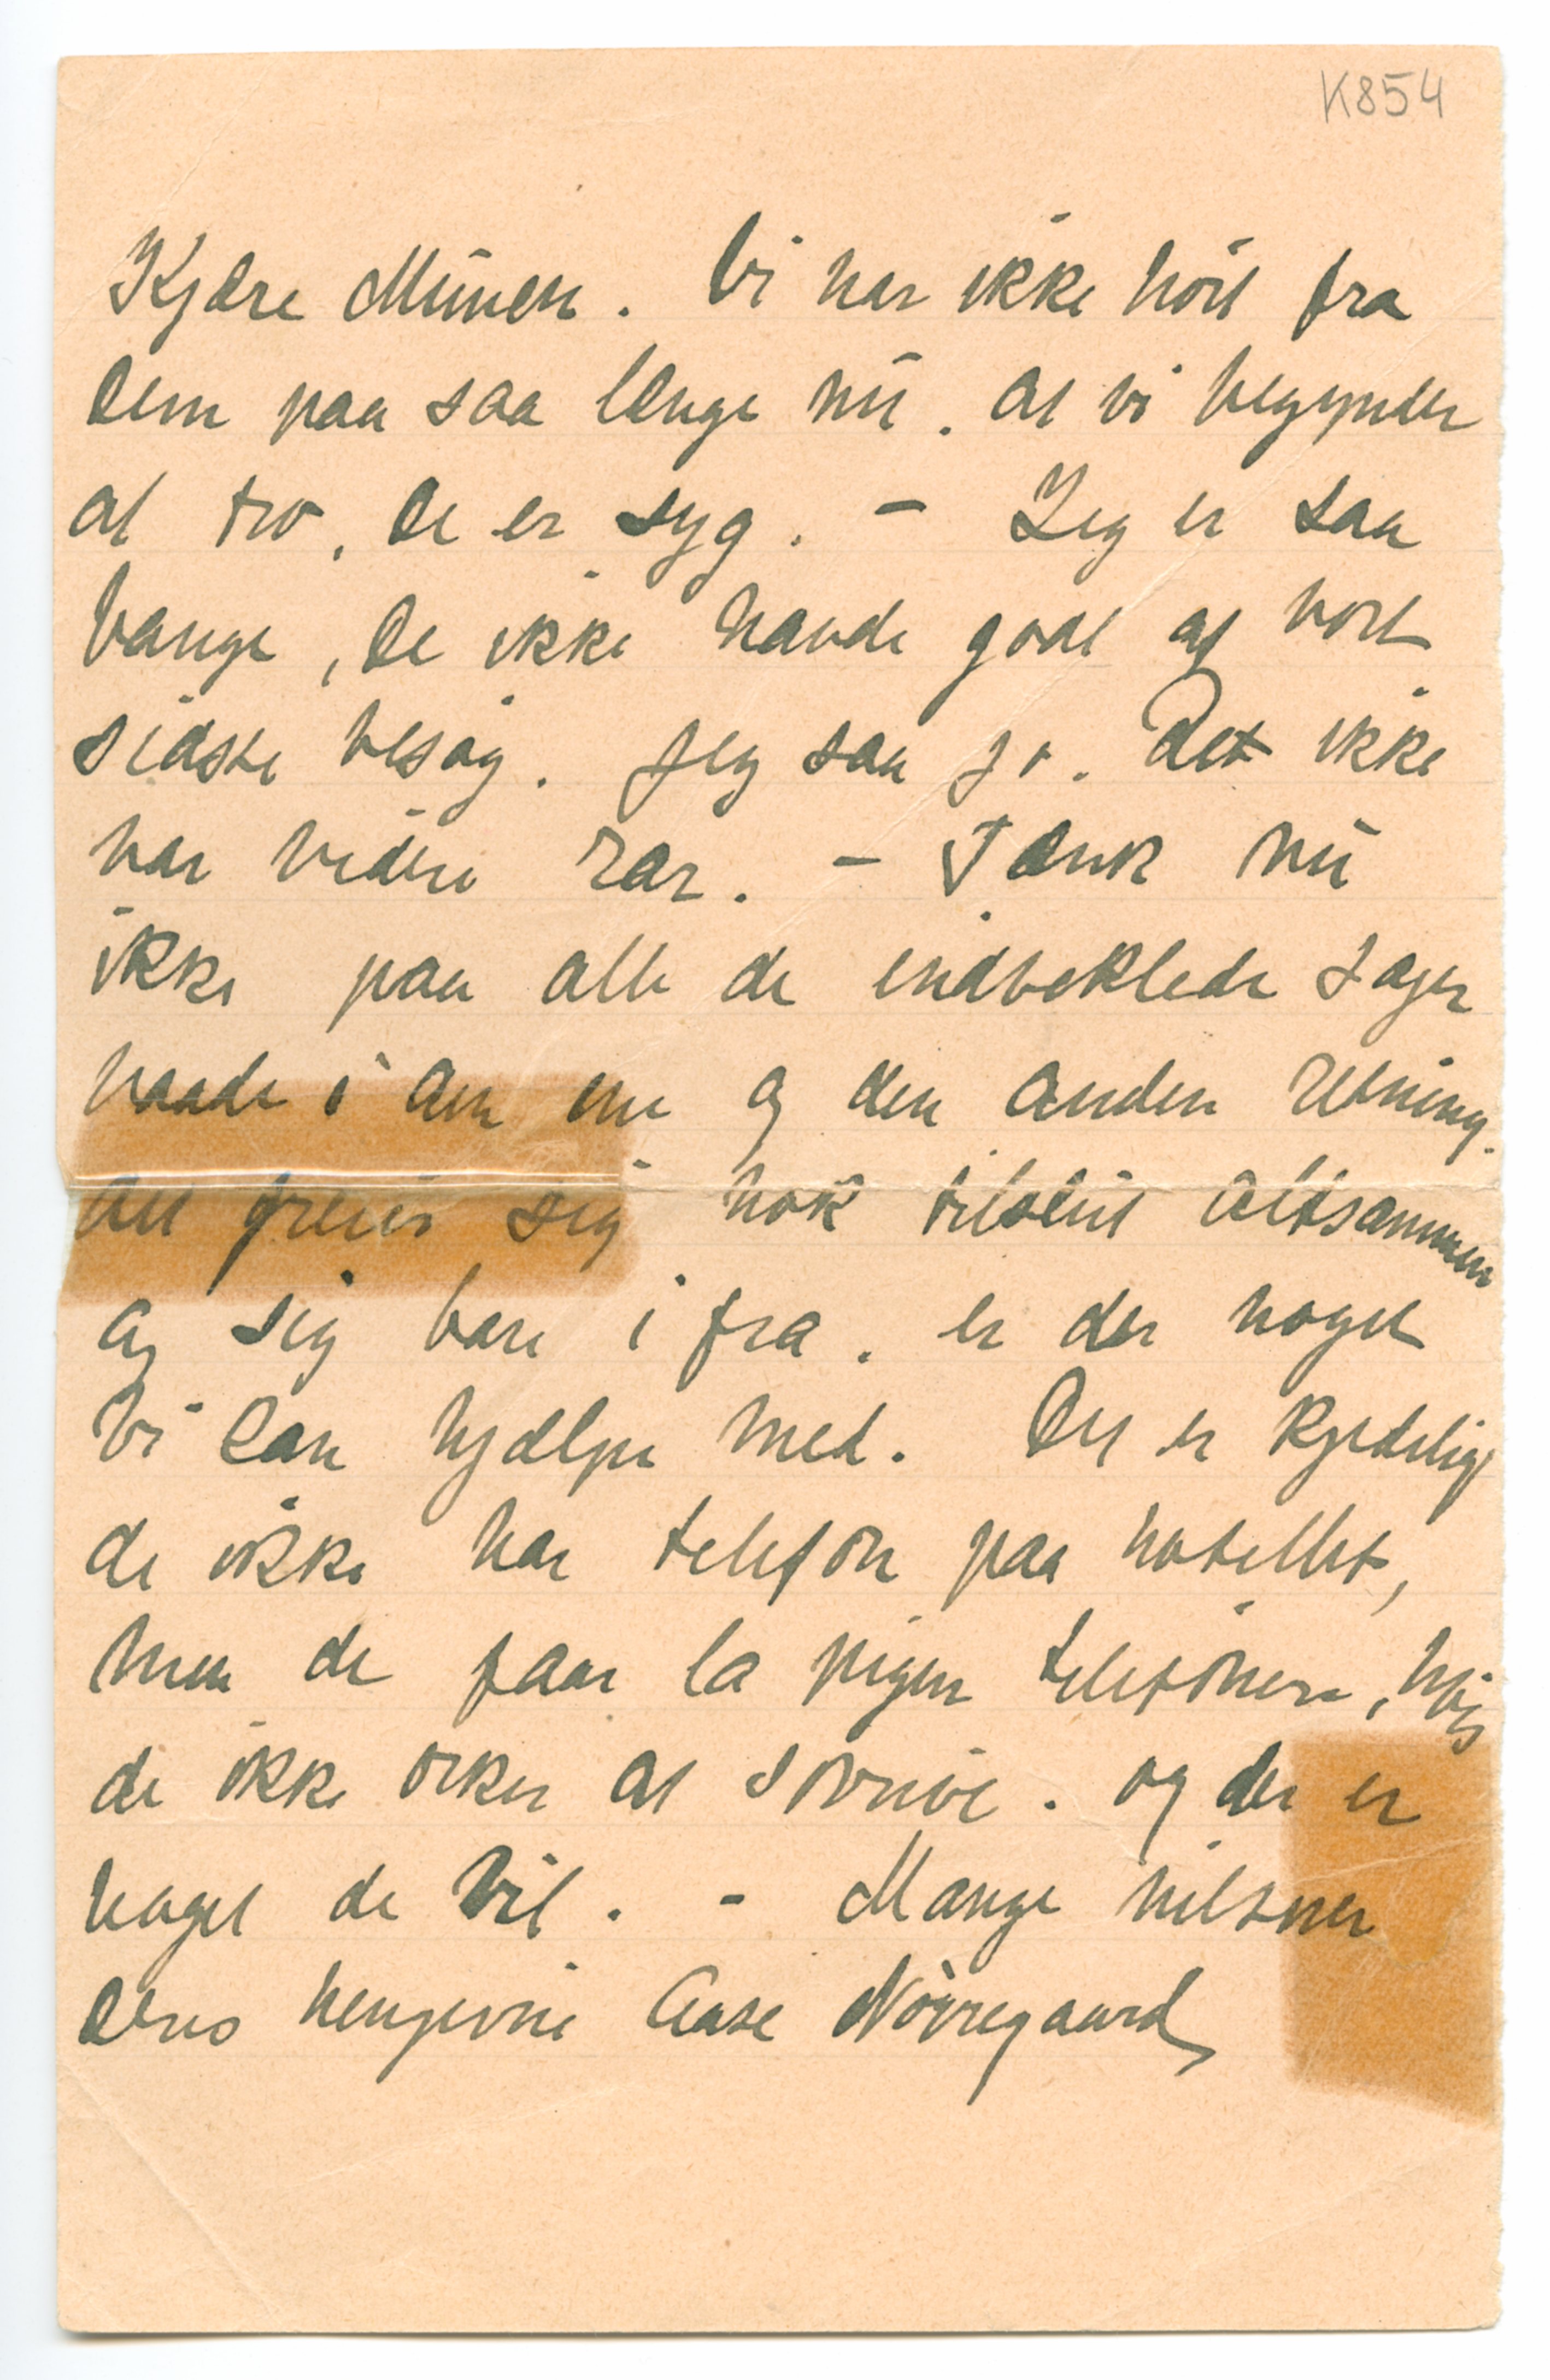 K854
Kjære Munch. Vi har ikke hört fra
Dem paa saa længe nu. At vi begynder
at tro, De er syg. - Jeg er saa
bange, De ikke havde godt af vort
sidste besög. Jeg saa jo. Det ikke
var videre rar. - Tænk nu
ikke paa alle de indveklede sager
baade i den ene og den anden retning.
Det greier sig nok tilslut altsammen
og sig bare i fra. er der noget
Vi kan hjælpe med. Det er kjedelig
de ikke har telefon paa hotellet,
men de faar la pigen telefonere, hvis
de ikke orker at skrive. og der er
noget de vil. - Mange hilsner
Deres hengivne Aase Nörregaard